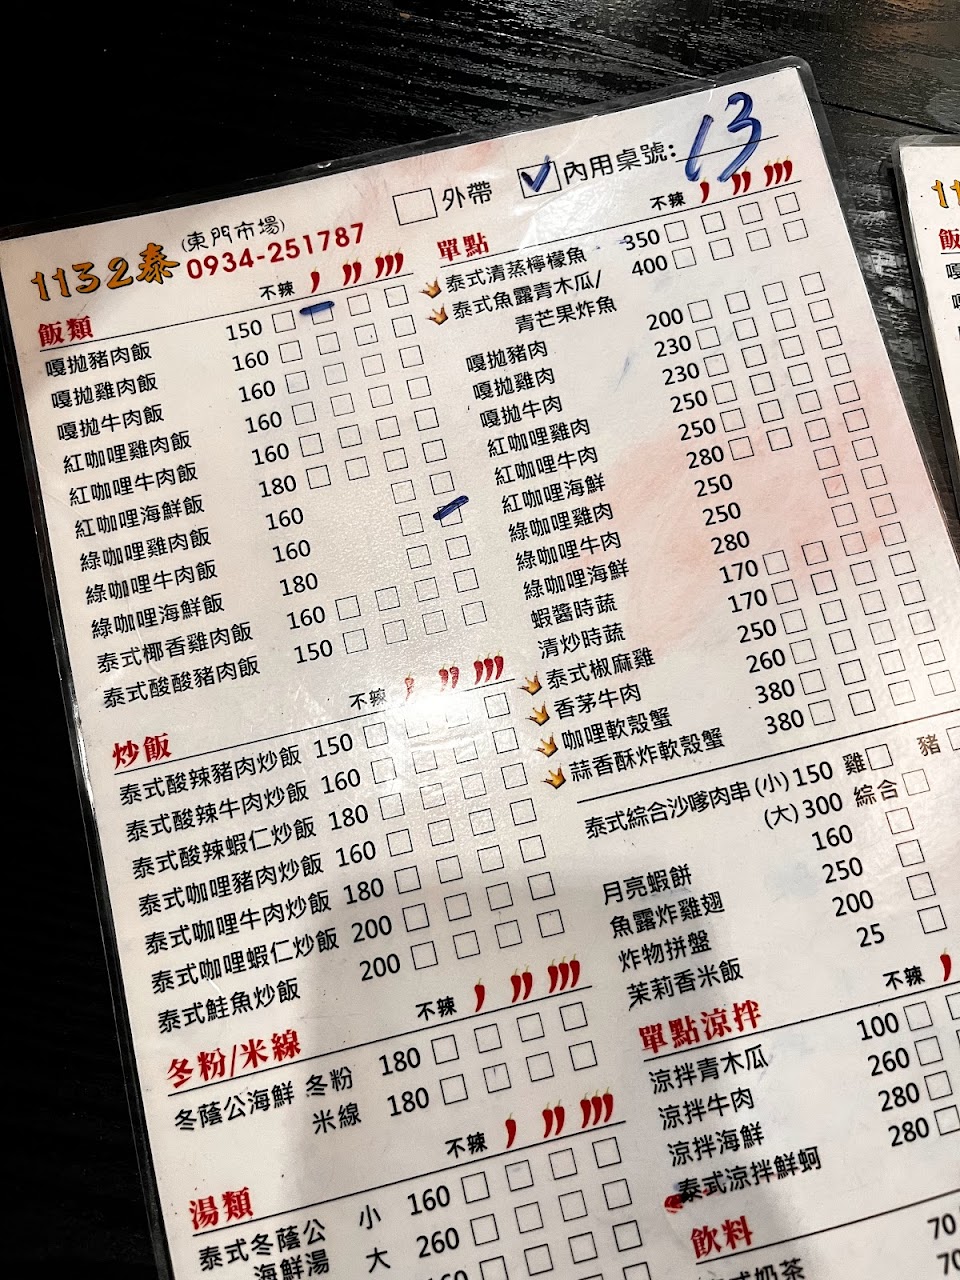 1132泰 (東門市場)
0934-251787
外帶 內用桌號: 13
飯類 不辣
嘎拋豬肉飯 150
嘎拋雞肉飯 160
嘎拋牛肉飯 160
紅咖哩雞肉飯 160
紅咖哩牛肉飯 160
紅咖哩海鮮飯 180
綠咖哩雞肉飯 160
綠咖哩牛肉飯 160
綠咖哩海鮮飯 180
泰式椰香雞肉飯 160
泰式酸酸豬肉飯 150
炒飯 不辣
泰式酸辣豬肉炒飯 150
泰式酸辣牛肉炒飯 160
泰式酸辣蝦仁炒飯 180
泰式咖哩豬肉炒飯 160
泰式咖哩牛肉炒飯 180
泰式咖哩蝦仁炒飯 200
泰式鮭魚炒飯 200
冬粉/米線 不辣
冬蔭公海鮮 冬粉 180
米線 180
湯類 不辣
泰式冬蔭公 小 160
海鮮湯 大 260
160
單點 不辣
泰式清蒸檸檬魚 350
泰式魚露青木瓜/ 400
青芒果炸魚
嘎拋豬肉 200
嘎拋雞肉 230
嘎拋牛肉 230
紅咖哩雞肉 250
紅咖哩牛肉 250
紅咖哩海鮮 280
綠咖哩雞肉 250
綠咖哩牛肉 250
綠咖哩海鮮 280
蝦醬時蔬 170
清炒時蔬 170
泰式椒麻雞 250
香茅牛肉 260
咖哩軟殼蟹 380
蒜香酥炸軟殼蟹 380
泰式綜合沙嗲肉串 (小) 150 雞 豬
(大) 300 綜合
月亮蝦餅 160
魚露炸雞翅 250
炸物拼盤 200
茉莉香米飯 25
單點涼拌 不辣
涼拌青木瓜 100
涼拌牛肉 260
涼拌海鮮 280
泰式涼拌鮮蚵 280
飲料
式奶茶 70
70
11
飯